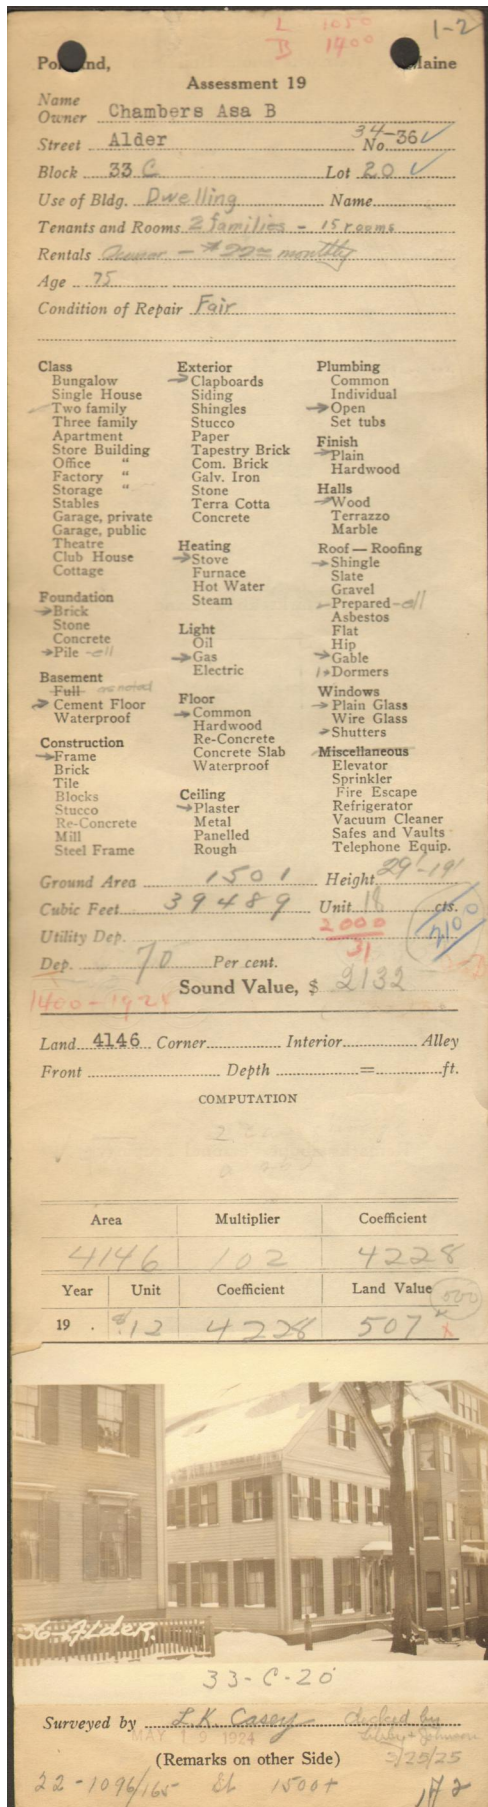 L 1050
B 1400
1-2
Portland, Maine
Assessment 19
Name
Owner Chambers Asa B
Street Alder No. 34-36
Block 33 C Lot 20
Use of Bldg. Dwelling Name
Tenants and Rooms 2 families - 15 rooms
Rentals - $22 monthly
Age 75
Condition of Repair Fair
Class
Bungalow
Single House
Two family
Three family
Apartment
Store Building
Office "
Factory "
Storage "
Stables
Garage, private
Garage, public
Theatre
Club House
Cottage
Foundation
Brick
Stone
Concrete
Pile - ell
Basement
Full as noted
Cement Floor
Waterproof
Construction
Frame
Brick
Tile
Blocks
Stucco
Re-Concrete
Mill
Steel Frame
Exterior
Clapboards
Siding
Shingles
Stucco
Paper
Tapestry Brick
Com. Brick
Galv. Iron
Stone
Terra Cotta
Concrete
Heating
Stove
Furnace
Hot Water
Steam
Light
Oil
Gas
Electric
Floor
Common
Hardwood
Re-Concrete
Concrete Slab
Waterproof
Ceiling
Plaster
Metal
Panelled
Rough
Plumbing
Common
Individual
Open
Set tubs
Finish
Plain
Hardwood
Halls
Wood
Terrazzo
Marble
Roof — Roofing
Shingle
Slate
Gravel
Prepared - ell
Asbestos
Flat
Hip
Gable
1 Dormers
Windows
Plain Glass
Wire Glass
Shutters
Miscellaneous
Elevator
Sprinkler
Fire Escape
Refrigerator
Vacuum Cleaner
Safes and Vaults
Telephone Equip.
Ground Area 1501 Height 29'-19'
Cubic Feet 39489 Unit 18 cts.
Utility Dep. 2000 2100
31
Dep. 70 Per cent.
Sound Value, $ 2132
1400-1928
Land 4146 Corner Interior Alley
Front Depth = ft.
COMPUTATION
Area Multiplier Coefficient
4146 102 4228
Year Unit Coefficient Land Value 500
19 . $.12 4228 507 x
36 Alder.
33-C-20
Surveyed by L.K. Casey checked by
MAY 19 1924 Libby & Johnson
(Remarks on other Side) 3/25/25
22-1096/165 1500+